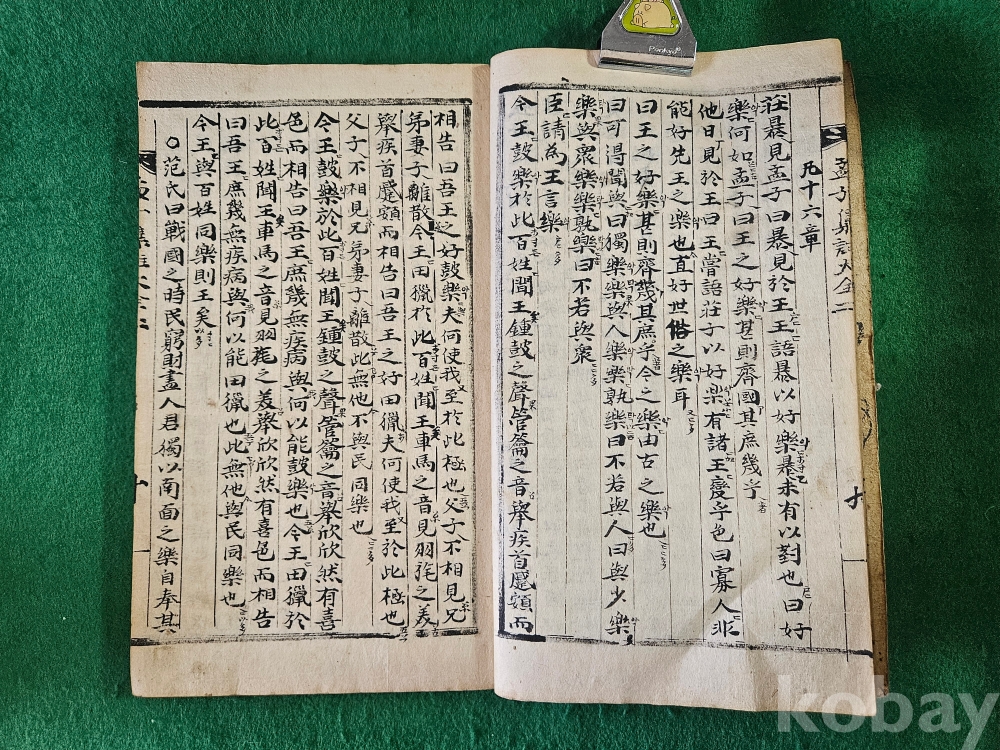 孟子集註大全二
十
凡十六章
莊暴見孟子曰暴見於王王語暴以好樂暴未有以對也曰好
樂何如孟子曰王之好樂甚則齊國其庶幾乎
他日見於王曰王嘗語莊子以好樂有諸王變乎色曰寡人非
能好先王之樂也直好世俗之樂耳
曰王之好樂甚則齊幾其庶乎今之樂由古之樂也
曰可得聞與曰獨樂樂與人樂樂孰樂曰不若與人曰與少樂
樂與衆樂樂孰樂曰不若與衆
臣請為王言樂
今王鼓樂於此百姓聞王鍾鼓之聲管籥之音舉疾首蹙頞而
相告曰吾王之好鼓樂夫何使我至於此極也父子不相見兄
弟妻子離散今王田獵於此百姓聞王車馬之音見羽旄之美
舉疾首蹙頞而相告曰吾王之好田獵夫何使我至於此極也
父子不相見兄弟妻子離散此無他不與民同樂也
今王鼓樂於此百姓聞王鍾鼓之聲管籥之音舉欣欣然有喜
色而相告曰吾王庶幾無疾病與何以能鼓樂也今王田獵於
此百姓聞王車馬之音見羽旄之美舉欣欣然有喜色而相告
曰吾王庶幾無疾病與何以能田獵也此無他與民同樂也
今王與百姓同樂則王矣
○范氏曰戰國之時民窮財盡人君獨以南面之樂自奉其
十
kobay